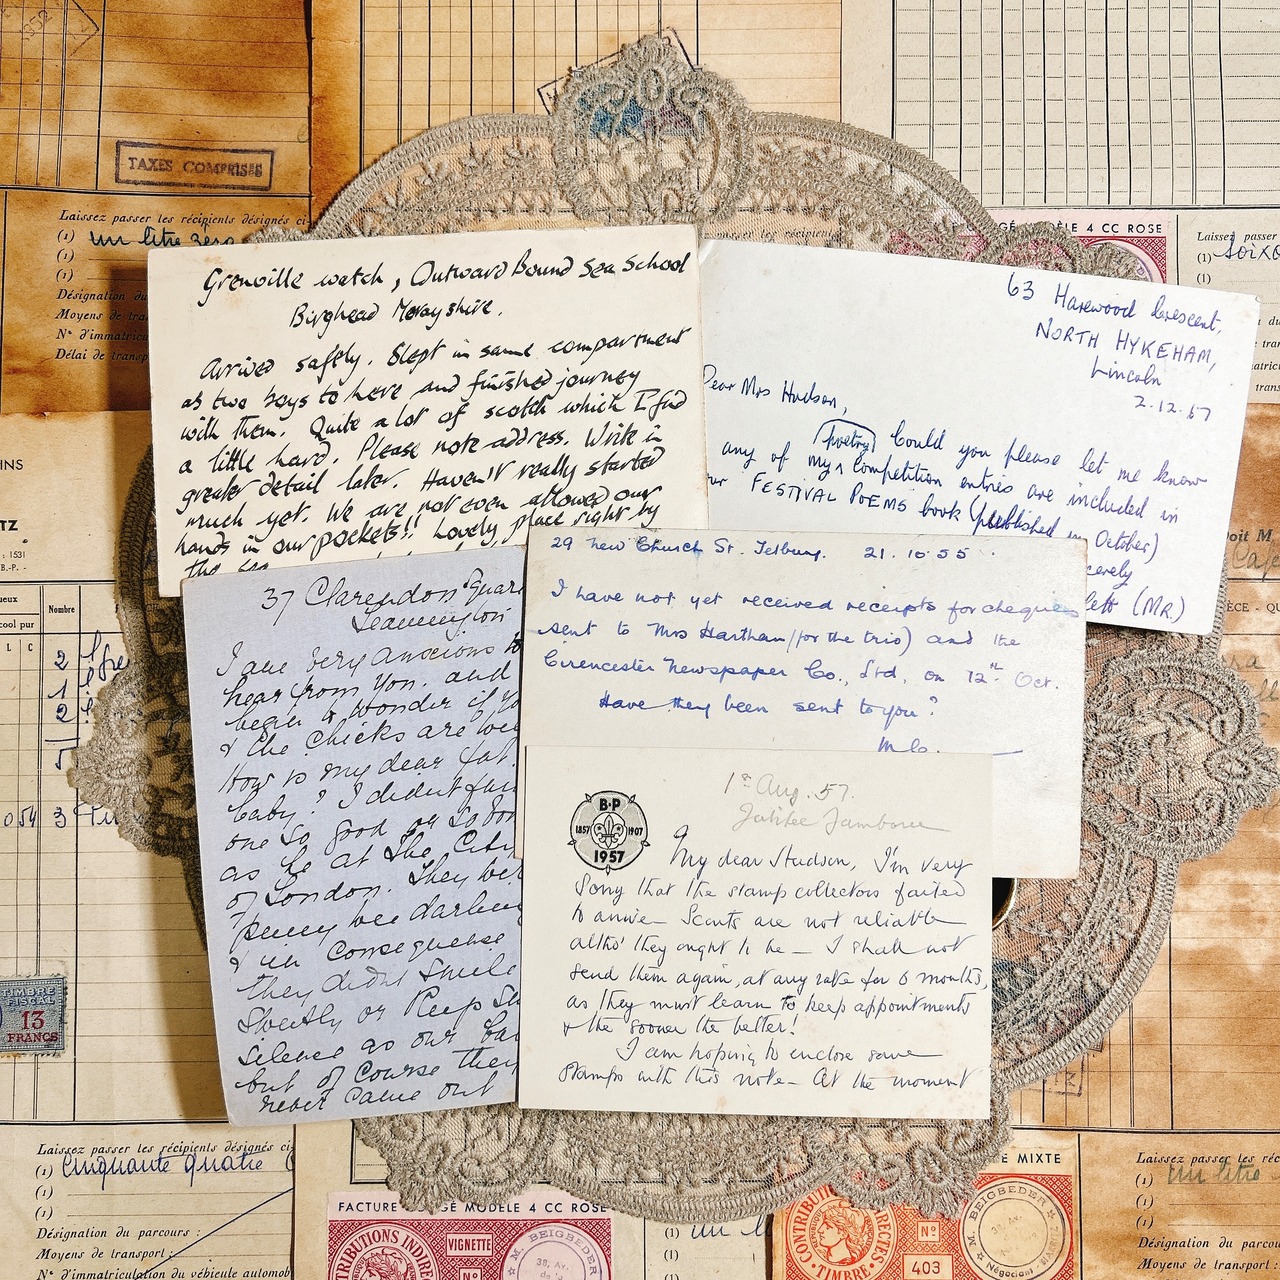 1952
TAXES COMPRISES
Laissez passer les récipients désignés ci-
(1) un litre zéro
(1)
(1)
Désignation du
Moyens de tra
N° d'immatric
Délai de transp
HNS
TZ
: 1531
B.-P. -
ueux
Nombre
cool pur
L C
2
1
2
5
0 54 3
TIMBRE
FISCAL
13
FRANCS
récipients
GÉ MODÈLE 4 CC ROSE
Laissez passer
(1) soixa
(1)
Grenville watch, Outward Bound Sea School
Burghead Morayshire.
Arrived safely. Slept in same compartment
as two boys to here and finished journey
with them. Quite a lot of scotch which I find
a little hard. Please note address. Write in
greater detail later. Haven't really started
much yet. We are not even allowed our
hands in our pockets!! Lovely place right by
the sea
63 Harewood Crescent,
NORTH HYKEHAM,
Lincoln
2.12.67
Dear Mrs Hudson,
(poetry) Could you please let me know
any of my competition entries are included in
ur FESTIVAL POEMS book (published in October)
cerely
lett (MR)
29 New Church St. Tetbury. 21.10.55
I have not yet received receipts for cheques
sent to Mrs Hartham (for the trio) and the
Cirencester Newspaper Co., Ltd. on 12th Oct.
Have they been sent to you?
37 Clarendon Square
Leamington
I am very anxious to
hear from you. and
begin to wonder if yo
& the chicks are we
How is my dear fat
baby? I didn't
one so good or so
as he at The City
of London. They we
wee darling
& in consequence
they didn't smile
sweetly or keep
silence as our
but of course they
never came out
B·P
1857 1907
1957
1st Aug. 57.
Jubilee Jamboree
My dear Hudson, I'm very
sorry that the stamp collectors failed
to arrive – Scouts are not reliable
altho' they ought to be – I shall not
send them again, at any rate for 6 months,
as they must learn to keep appointments
& the sooner the better!
I am hoping to enclose some
stamps with this note – At the moment
Laissez passer les récipients désignés ci
(1) Cinquante quatre
(1)
(1)
Désignation du parcours :
Moyens de transport :
N° d'immatriculation du véhicule automob
FACTURE
GÉ MODÈLE 4 CC ROSE
TRIBUTIONS INDIRE
VIGNETTE
N°
M. BEIGBEDER
39, Av.
(1) un
(1)
(1)
E MIXTE
CONTRIBUTI
RECTES
TIMBRE
N°
403
M. BEIGBEDER
39, Av.
Négociant
Laissez passer les réc
(1) un litre
(1)
(1)
Désignation du parcours
Moyens de transport :
N° d'immatriculation du